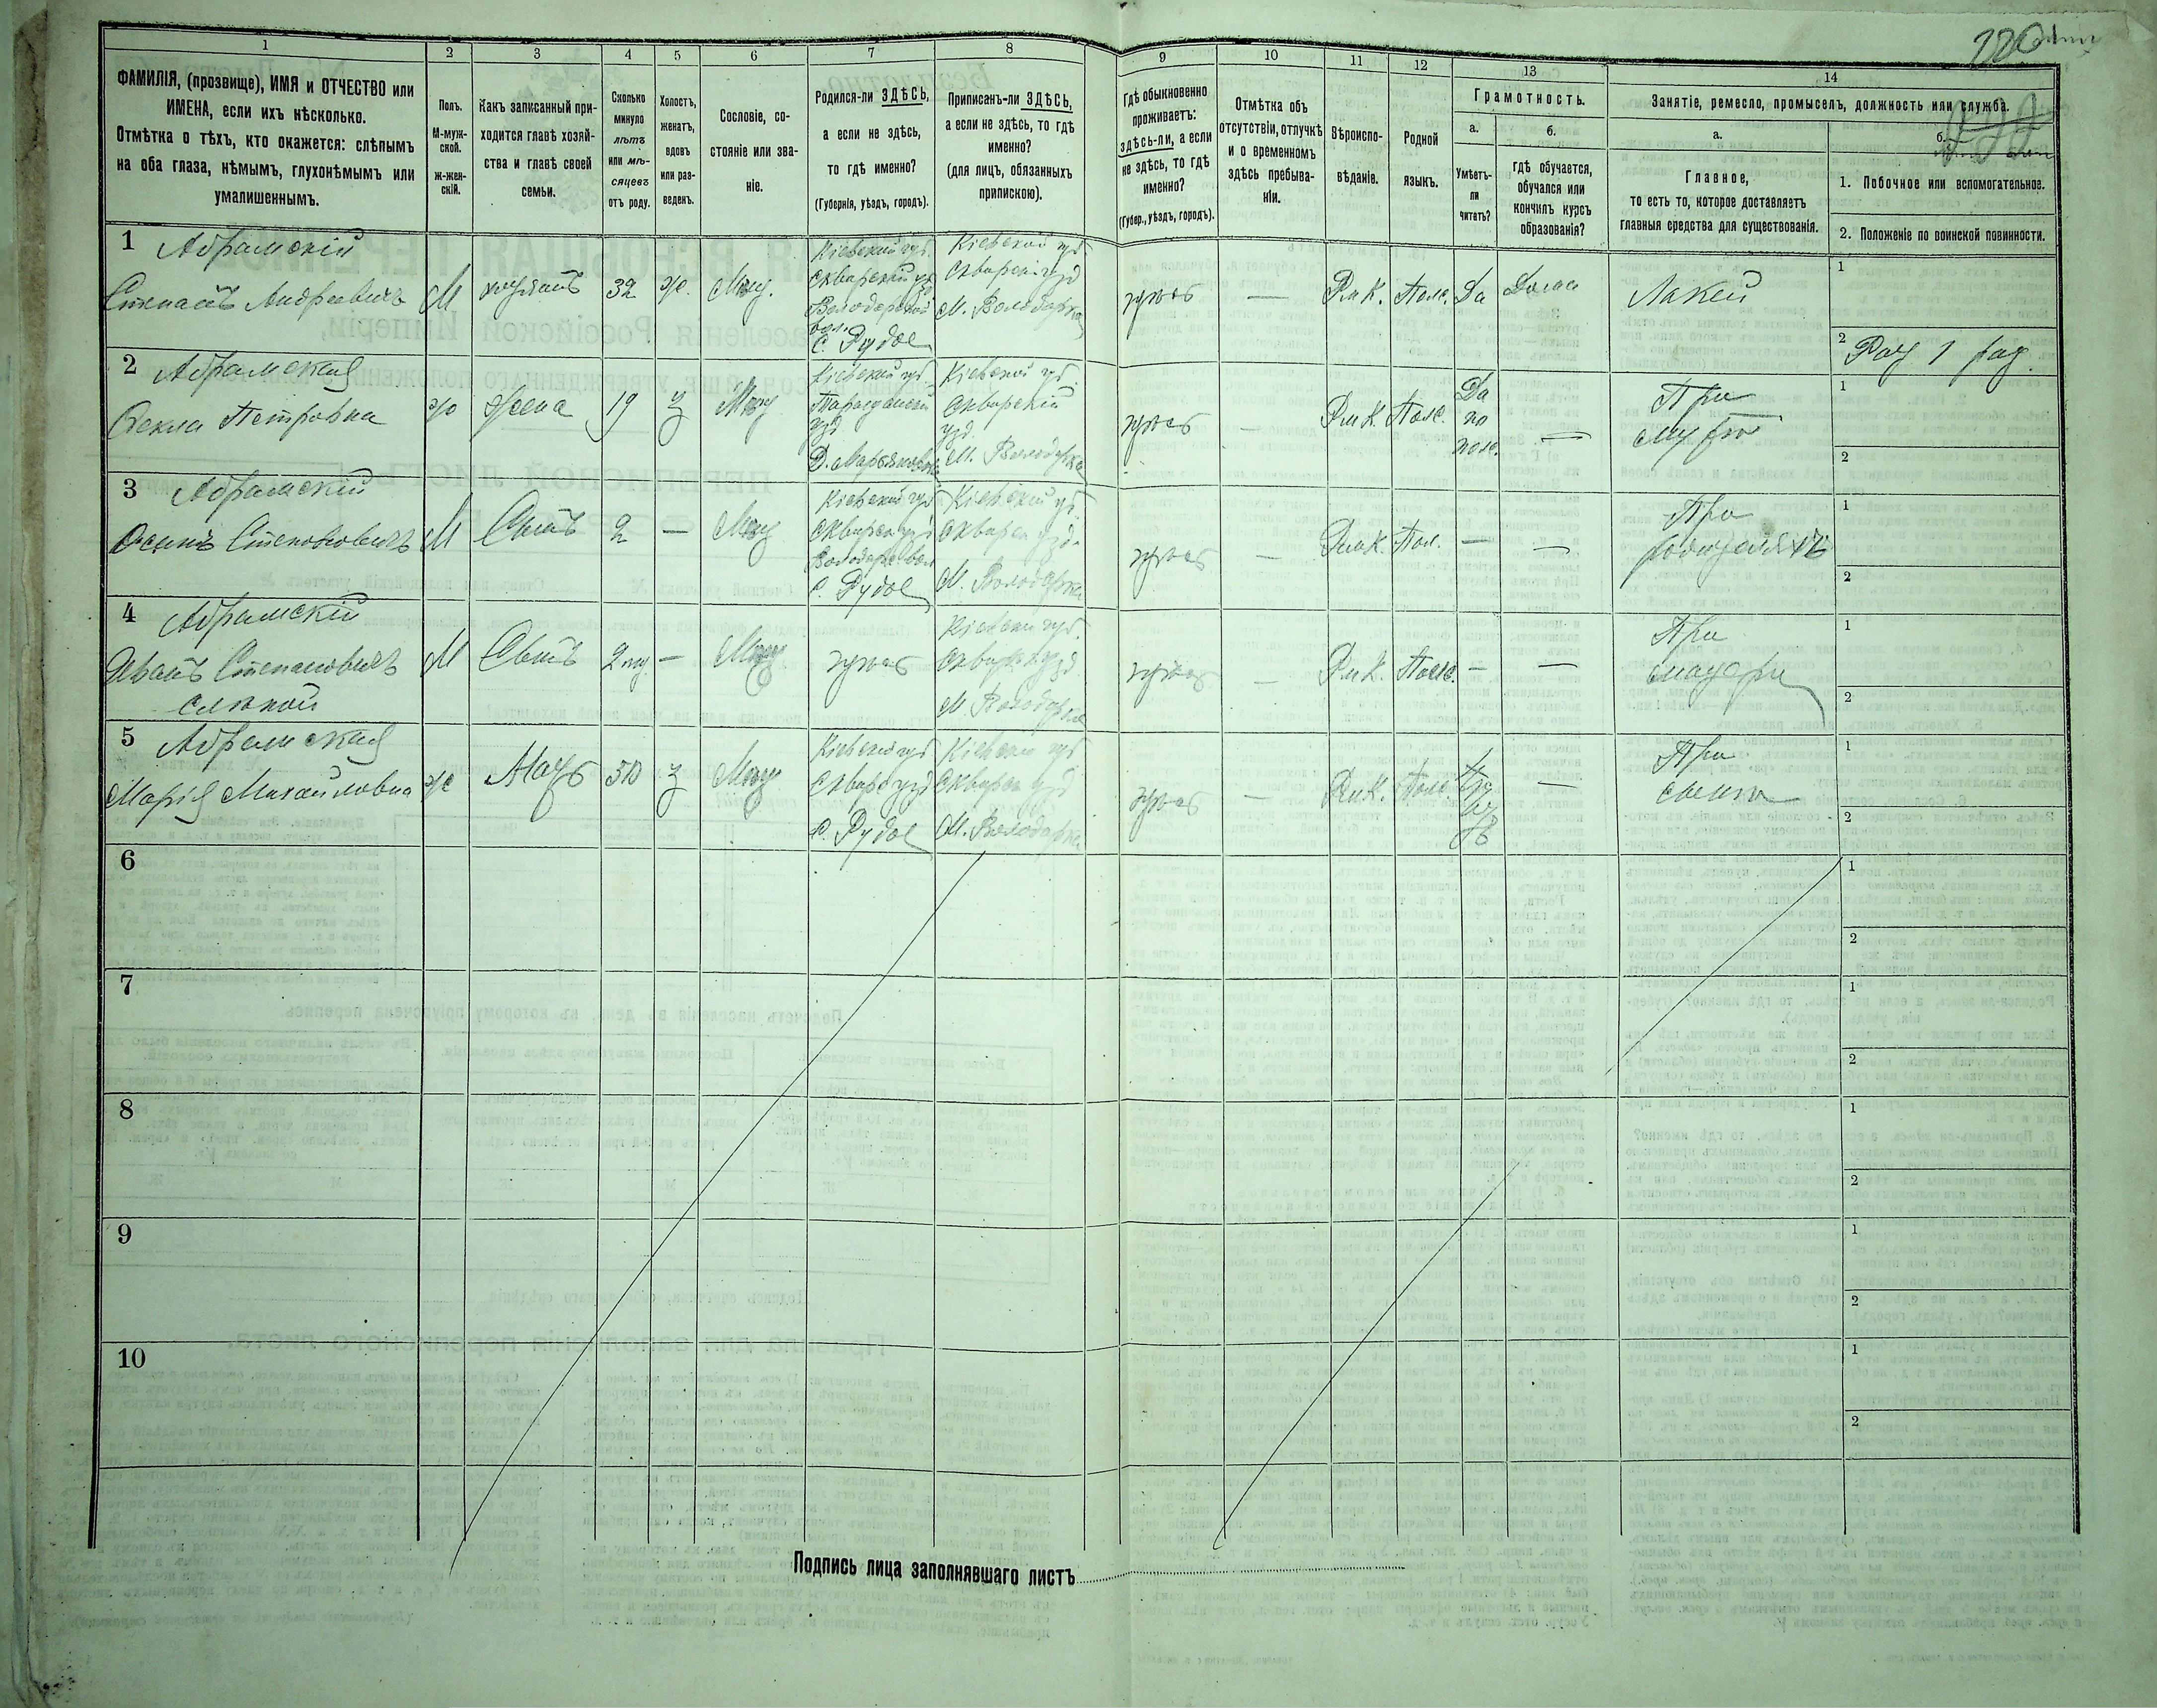 1
2
3
4
5
6
7
8
9
10
11
12
13
14
ФАМИЛІЯ, (прозвище), ИМЯ и ОТЧЕСТВО или
ИМЕНА, если ихъ нѣсколько.
Отмѣтка о тѣхъ, кто окажется: слѣпымъ
на оба глаза, нѣмымъ, глухонѣмымъ или
умалишеннымъ.
Полъ.
М-муж-
ской.
ж-жен-
скій.
Какъ записанный при-
ходится главѣ хозяй-
ства и главѣ своей
семьи.
Сколько
минуло
лѣтъ
или мѣ-
сяцевъ
отъ роду.
Холостъ,
женатъ,
вдовъ
или раз-
веденъ.
Сословіе, со-
стояніе или зва-
ніе.
Родился-ли ЗДѢСЬ,
а если не здѣсь,
то гдѣ именно?
(Губернія, уѣздъ, городъ).
Приписанъ-ли ЗДѢСЬ,
а если не здѣсь, то гдѣ
именно?
(для лицъ, обязанныхъ
припискою).
Гдѣ обыкновенно
проживаетъ:
здѣсь-ли, а если
не здѣсь, то гдѣ
именно?
(Губер., уѣздъ, городъ).
Отмѣтка объ
отсутствіи, отлучкѣ
и о временномъ
здѣсь пребыва-
ніи.
Вѣроиспо-
вѣданіе.
Родной
языкъ.
Грамотность.
а.
Умѣетъ-
ли
читать?
б.
Гдѣ обучается,
обучался или
кончилъ курсъ
образованія?
Занятіе, ремесло, промыселъ, должность или служба.
а.
Главное,
то есть то, которое доставляетъ
главныя средства для существованія.
б.
1. Побочное или вспомогательное.
2. Положеніе по воинской повинности.
1 Абрамскій
Степанъ Андреевичъ
М
хозяинъ
32
ж.
Мѣщ.
Кіевской губ.
Сквирскій уѣ
Володарской
вол.
С. Рудое
Кіевской губ.
Сквирскій уѣзд
М. Володарка
здѣсь
—
Рим К.
Полс.
Да
Дома
Лакей
1
2
2 Абрамская
Текла Петровна
ж
Жена
19
З
Мѣщ
Кіевской губ.
Кіевской губ.
Сквирскій
уѣзд.
М. Володарка
здѣсь
—
Рим К.
Полс.
Да
по
полс.
—
При
мужѣ
1
2
3 Абрамскій
Осипъ Степановичъ
М
Сынъ
2
—
Мѣщ
Кіевской губ
Сквирск уѣзд
Володарск вол
С. Рудое
Кіевской губ.
Сквирск уѣзд.
М. Володарка
здѣсь
—
Рим К.
Пол.
—
—
При
родителяхъ
1
2
4 Абрамскій
Иванъ Степановичъ
слѣпой
М
Сынъ
—
Мѣщ
здѣсь
Кіевской губ.
Сквирск уѣзд.
М. Володарка
здѣсь
—
Рим К.
Полс.
—
—
При
матери
1
2
5 Абрамская
Марія Михайловна
ж
Мать
50
З
Мѣщ
Кіевской губ
Сквирс уѣзд
С. Рудое
Кіевской губ
Сквирск уѣзд
М. Володарка
здѣсь
—
Рим К.
Полс.
—
При
сынѣ
1
2
6
1
2
7
1
2
8
1
2
9
1
2
10
1
2
Подпись лица заполнявшаго листъ